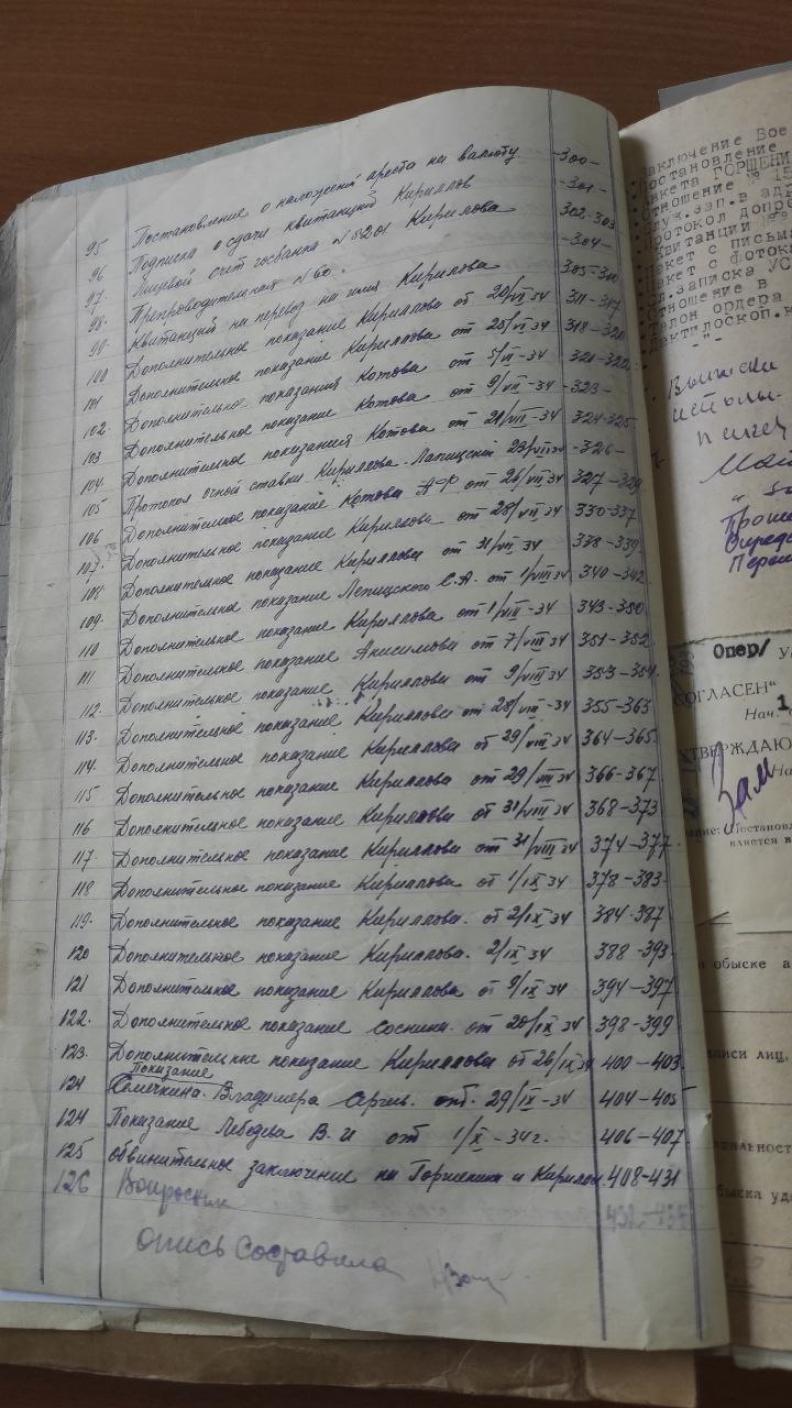 95 Постановление о наложении ареста на валюту -300-
96 Подписка о сдачи квитанций Кириллов -301-
97. Лицевой счет госбанка № 8201 Кирилова 302-303
98. Препроводительная № 60. -304-
99. Квитанций на перевод на имя Кирилова 305-310
100 Дополнительное показание Кириллова от 20/VI-34 311-317
101 Дополнительное показание Кириллова от 25/VI-34 318-320
102. Дополнительное показания Котова от 5/VII-34 321-322
103 Дополнительное показание Котова от 9/VII-34 -323-
104. Дополнительное показания Котова от 21/VII-34 324-325
105 Протокол очной ставки Кириллова-Лапицкой 23/VII 34 -326-
106 Дополнительное показание Котова А Ф от 26/VII 34 327-329
107. Дополнительное показание Кириллова от 28/VII-34 330-337
108 Дополнительное показание Кириллова от 31/VII-34 338-339
109. Дополнительное показание Лепицского С.А. от 1/VIII 34 340-342
110 Дополнительное показание Кириллова от 1/VIII-34 343-350
111 Дополнительное показание Анисимова от 7/VIII 34 351-352
112. Дополнительное показание Кириллова от 9/VIII-34 353-354
113. Дополнительное показание Кириллова от 28/VIII-34 355-363
114. Дополнительное показание Кириллова от 29/VIII 34 364-365
115 Дополнительное показание Кириллова от 29/VIII 34 366-367
116 Дополнительное показание Кириллова от 31/VIII 34 368-373
117. Дополнительное показание Кириллова от 31/VIII 34 374-377
118 Дополнительное показание Кириллова от 1/IX 34 378-383
119. Дополнительное показание Кириллова. от 2/IX-34 384-387
120 Дополнительное показание Кириллова. 2/IX-34 388-393
121 Дополнительное показание Кириллова от 9/IX-34 394-397
122. Дополнительное показание соснина. от 20/IX-34 398-399
123. Дополнительные показание Кириллова от 26/IX 34 400-403
Показание
124 Семечкина. Владимера от. 29/IX-34 404-405
124 Показание Лебедева В.И от 1/X-34 г. 406-407
125 обвинительное заключение на Горшенин и Кирилов. 408-431
126 Вопросник
опись составила
аключение Вое
остановление
нкета ГОРШЕНИ
тношение № 15
луж.зап.в адр
ротокол допре
квитанции
акет с письма
акет с фотока
записка УС
тношение в
алон ордера
актилоскоп.к
-"-
Выписки
Опер/
СОГЛАСЕН"
Нач. 1
УТВЕРЖДАЮ
Зам
На
ание: Постановл
вляется в
обыске а
писи лиц.
альност
быска уд